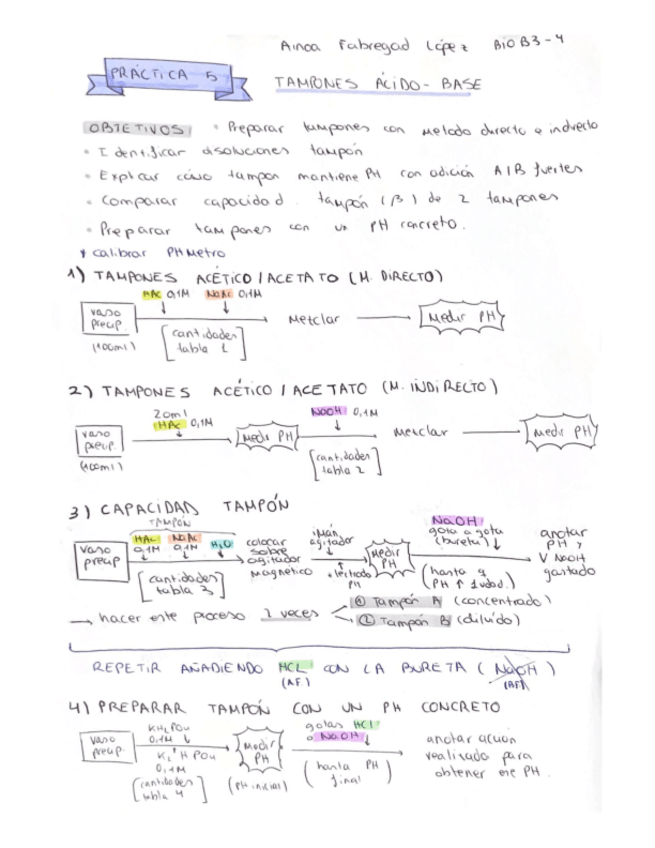 Ainoa Fabregad López BIO B3-4
PRÁCTICA 5
TAMPONES ÁCIDO-BASE
OBJETIVOS: • Preparar tampones con metodo directo e indirecto
• Identificar disoluciones tampón
• Explicar cómo tampon mantiene PH con adición A/B fuertes
• Comparar capacidad tampón (β) de 2 tampones
• Preparar tampones con un PH concreto.
calibrar PHmetro
1) TAMPONES ACÉTICO/ACETATO (M. DIRECTO)
HAc 0,1M NaAc 0,1M
vaso precip. Mezclar Medir PH
(100ml) [cantidades tabla 1]
2) TAMPONES ACÉTICO/ACETATO (M. INDIRECTO)
20ml HAc 0,1M NaOH 0,1M
vaso precip. Medir PH mezclar Medir PH
(100ml) [cantidades tabla 2]
3) CAPACIDAD TAMPÓN
TAMPÓN
HAc 0,1M NaAc 0,1M H2O
vaso precip
[cantidades tabla 3]
colocar sobre agitador magnetico
imán agitador
electrodo PH
Medir PH
NaOH gota a gota (bureta)
(hasta q PH ↑ 1 udad.)
anotar PH y V NaOH gastado
→ hacer este proceso 2 veces
① Tampón A (concentrado)
② Tampón B (diluido)
REPETIR AÑADIENDO HCl CON LA BURETA (NaOH)
(A.F.) (B.F.)
4) PREPARAR TAMPÓN CON UN PH CONCRETO
KH2PO4 0,1M
vaso precip.
K2HPO4 0,1M
[cantidades tabla 4]
Medir PH
(PH inicial)
gotas HCl
o NaOH
(hasta PH final)
anotar
realizado para
obtener ese PH.